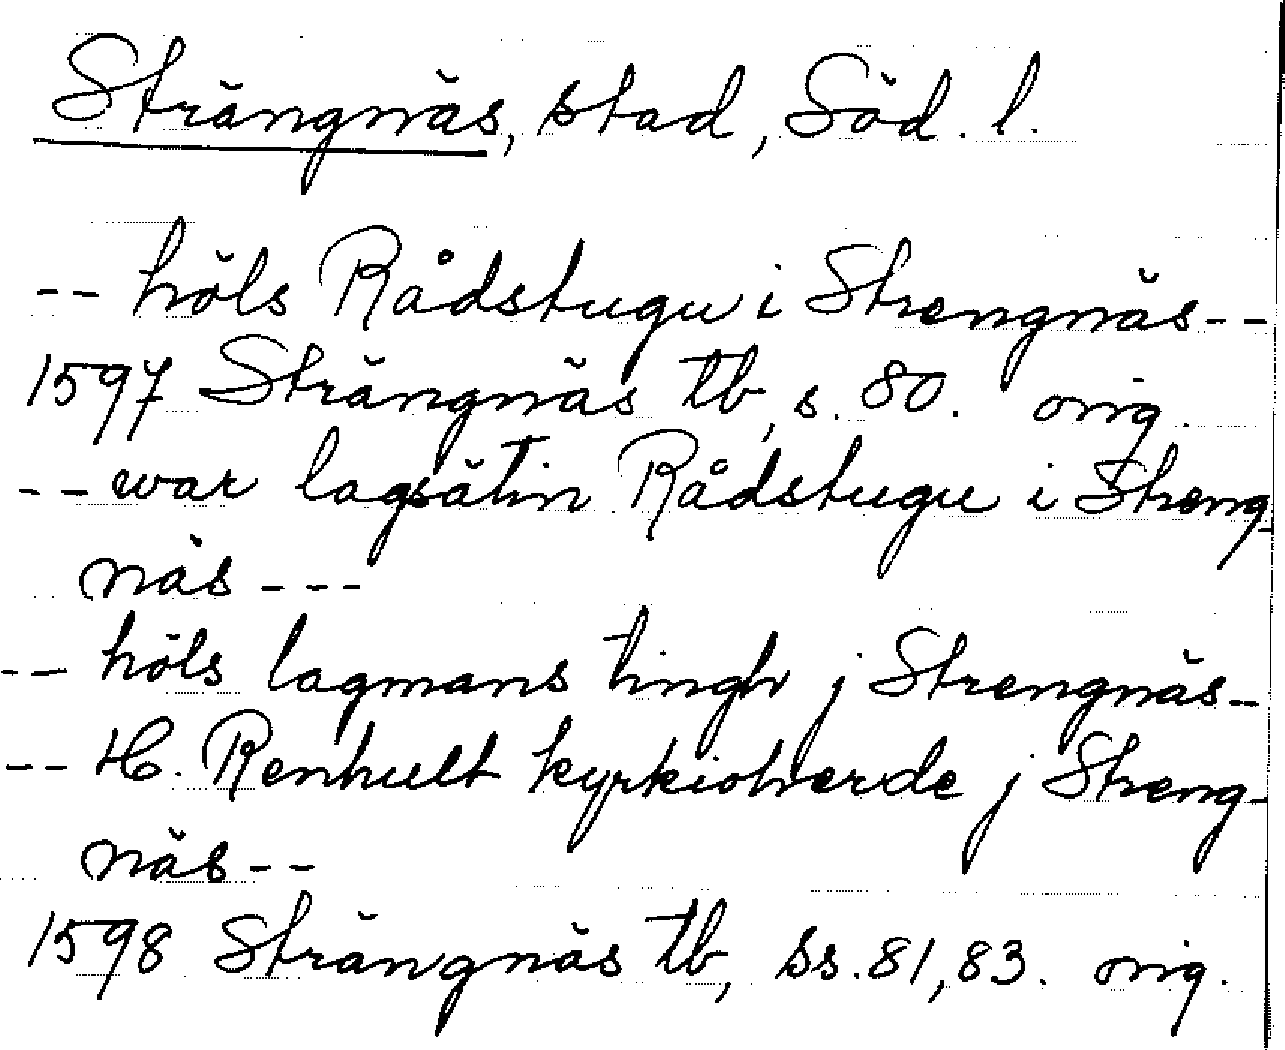 Strängnäs, stad, Söd. l.
-- höls Rådstugu i Strengnäs--
1597 Strängnäs tb, s. 80. orig.
-- war lagsätin Rådstugu i Streng-
näs ---
-- höls lagmans tingh j Strengnäs-
-- H. Renhult kyrkioherde j Streng-
näs--
1598 Strängnäs tb, ss. 81, 83. orig.